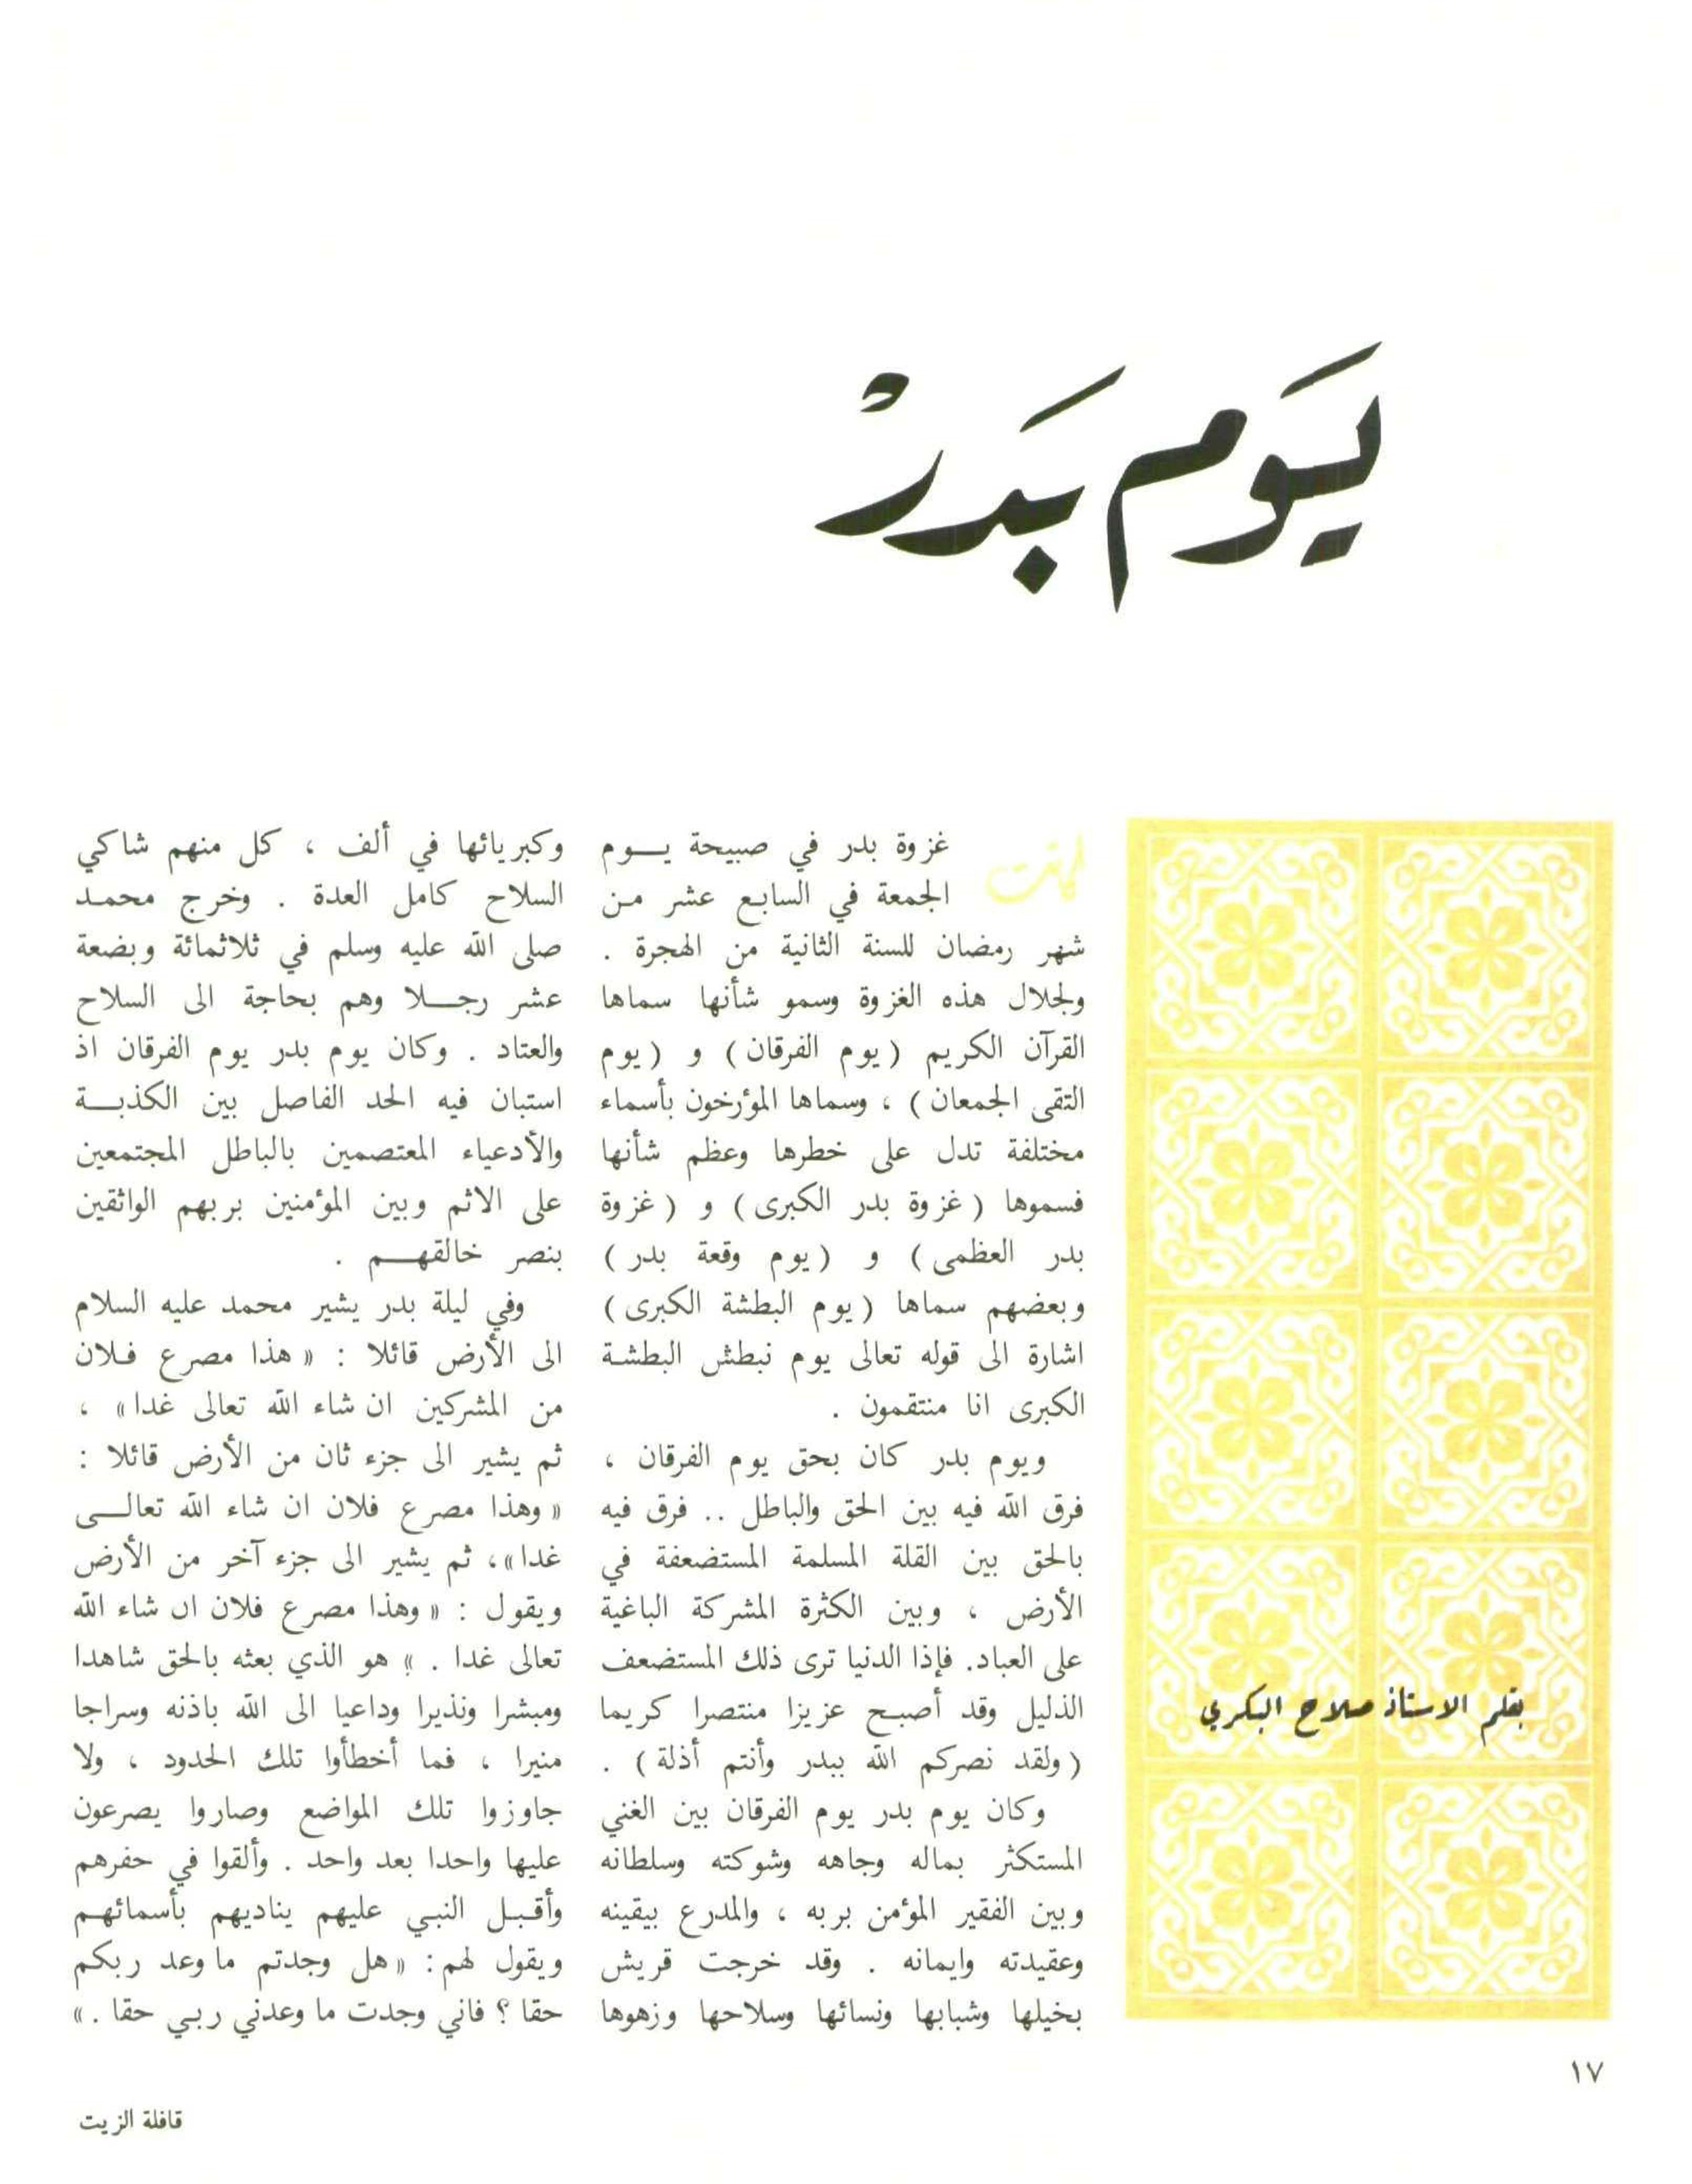 يَوم بَدرْ
بقلم الاستاذ صلاح البكري
كانت غزوة بدر في صبيحة يـــوم
الجمعة في السابع عشر من
شهر رمضان للسنة الثانية من الهجرة .
ولجلال هذه الغزوة وسمو شأنها سماها
القرآن الكريم ( يوم الفرقان ) و ( يوم
التقى الجمعان ) ، وسماها المؤرخون بأسماء
مختلفة تدل على خطرها وعظم شأنها
فسموها ( غزوة بدر الكبرى ) و ( غزوة
بدر العظمى ) و ( يوم وقعة بدر )
وبعضهم سماها ( يوم البطشة الكبرى )
اشارة الى قوله تعالى يوم نبطش البطشة
الكبرى انا منتقمون .
ويوم بدر كان بحق يوم الفرقان ،
فرق الله فيه بين الحق والباطل .. فرق فيه
بالحق بين القلة المسلمة المستضعفة في
الأرض ، وبين الكثرة المشركة الباغية
على العباد. فإذا الدنيا ترى ذلك المستضعف
الذليل وقد أصبح عزيزا منتصرا كريما
( ولقد نصركم الله ببدر وأنتم أذلة ) .
وكان يوم بدر يوم الفرقان بين الغني
المستكثر بماله وجاهه وشوكته وسلطانه
وبين الفقير المؤمن بربه ، والمدرع بيقينه
وعقيدته وايمانه . وقد خرجت قريش
بخيلها وشبابها ونسائها وسلاحها وزهوها
وكبريائها في ألف ، كل منهم شاكي
السلاح كامل العدة . وخرج محمد
صلى الله عليه وسلم في ثلاثمائة وبضعة
عشر رجـــلا وهم بحاجة الى السلاح
والعتاد . وكان يوم بدر يوم الفرقان اذ
استبان فيه الحد الفاصل بين الكذبـــة
والأدعياء المعتصمين بالباطل المجتمعين
على الاثم وبين المؤمنين بربهم الواثقين
بنصر خالقهـــم .
وفي ليلة بدر يشير محمد عليه السلام
الى الأرض قائلا : « هذا مصرع فلان
من المشركين ان شاء الله تعالى غدا » ،
ثم يشير الى جزء ثان من الأرض قائلا :
« وهذا مصرع فلان ان شاء الله تعالـــى
غدا »، ثم يشير الى جزء آخر من الأرض
ويقول : « وهذا مصرع فلان ان شاء الله
تعالى غدا . » هو الذي بعثه بالحق شاهدا
ومبشرا ونذيرا وداعيا الى الله باذنه وسراجا
منيرا ، فما أخطأوا تلك الحدود ، ولا
جاوزوا تلك المواضع وصاروا يصرعون
عليها واحدا بعد واحد . وألقوا في حفرهم
وأقبل النبي عليهم يناديهم بأسمائهم
ويقول لهم : « هل وجدتم ما وعد ربكم
حقا ؟ فاني وجدت ما وعدني ربي حقا . »
١٧
قافلة الزيت